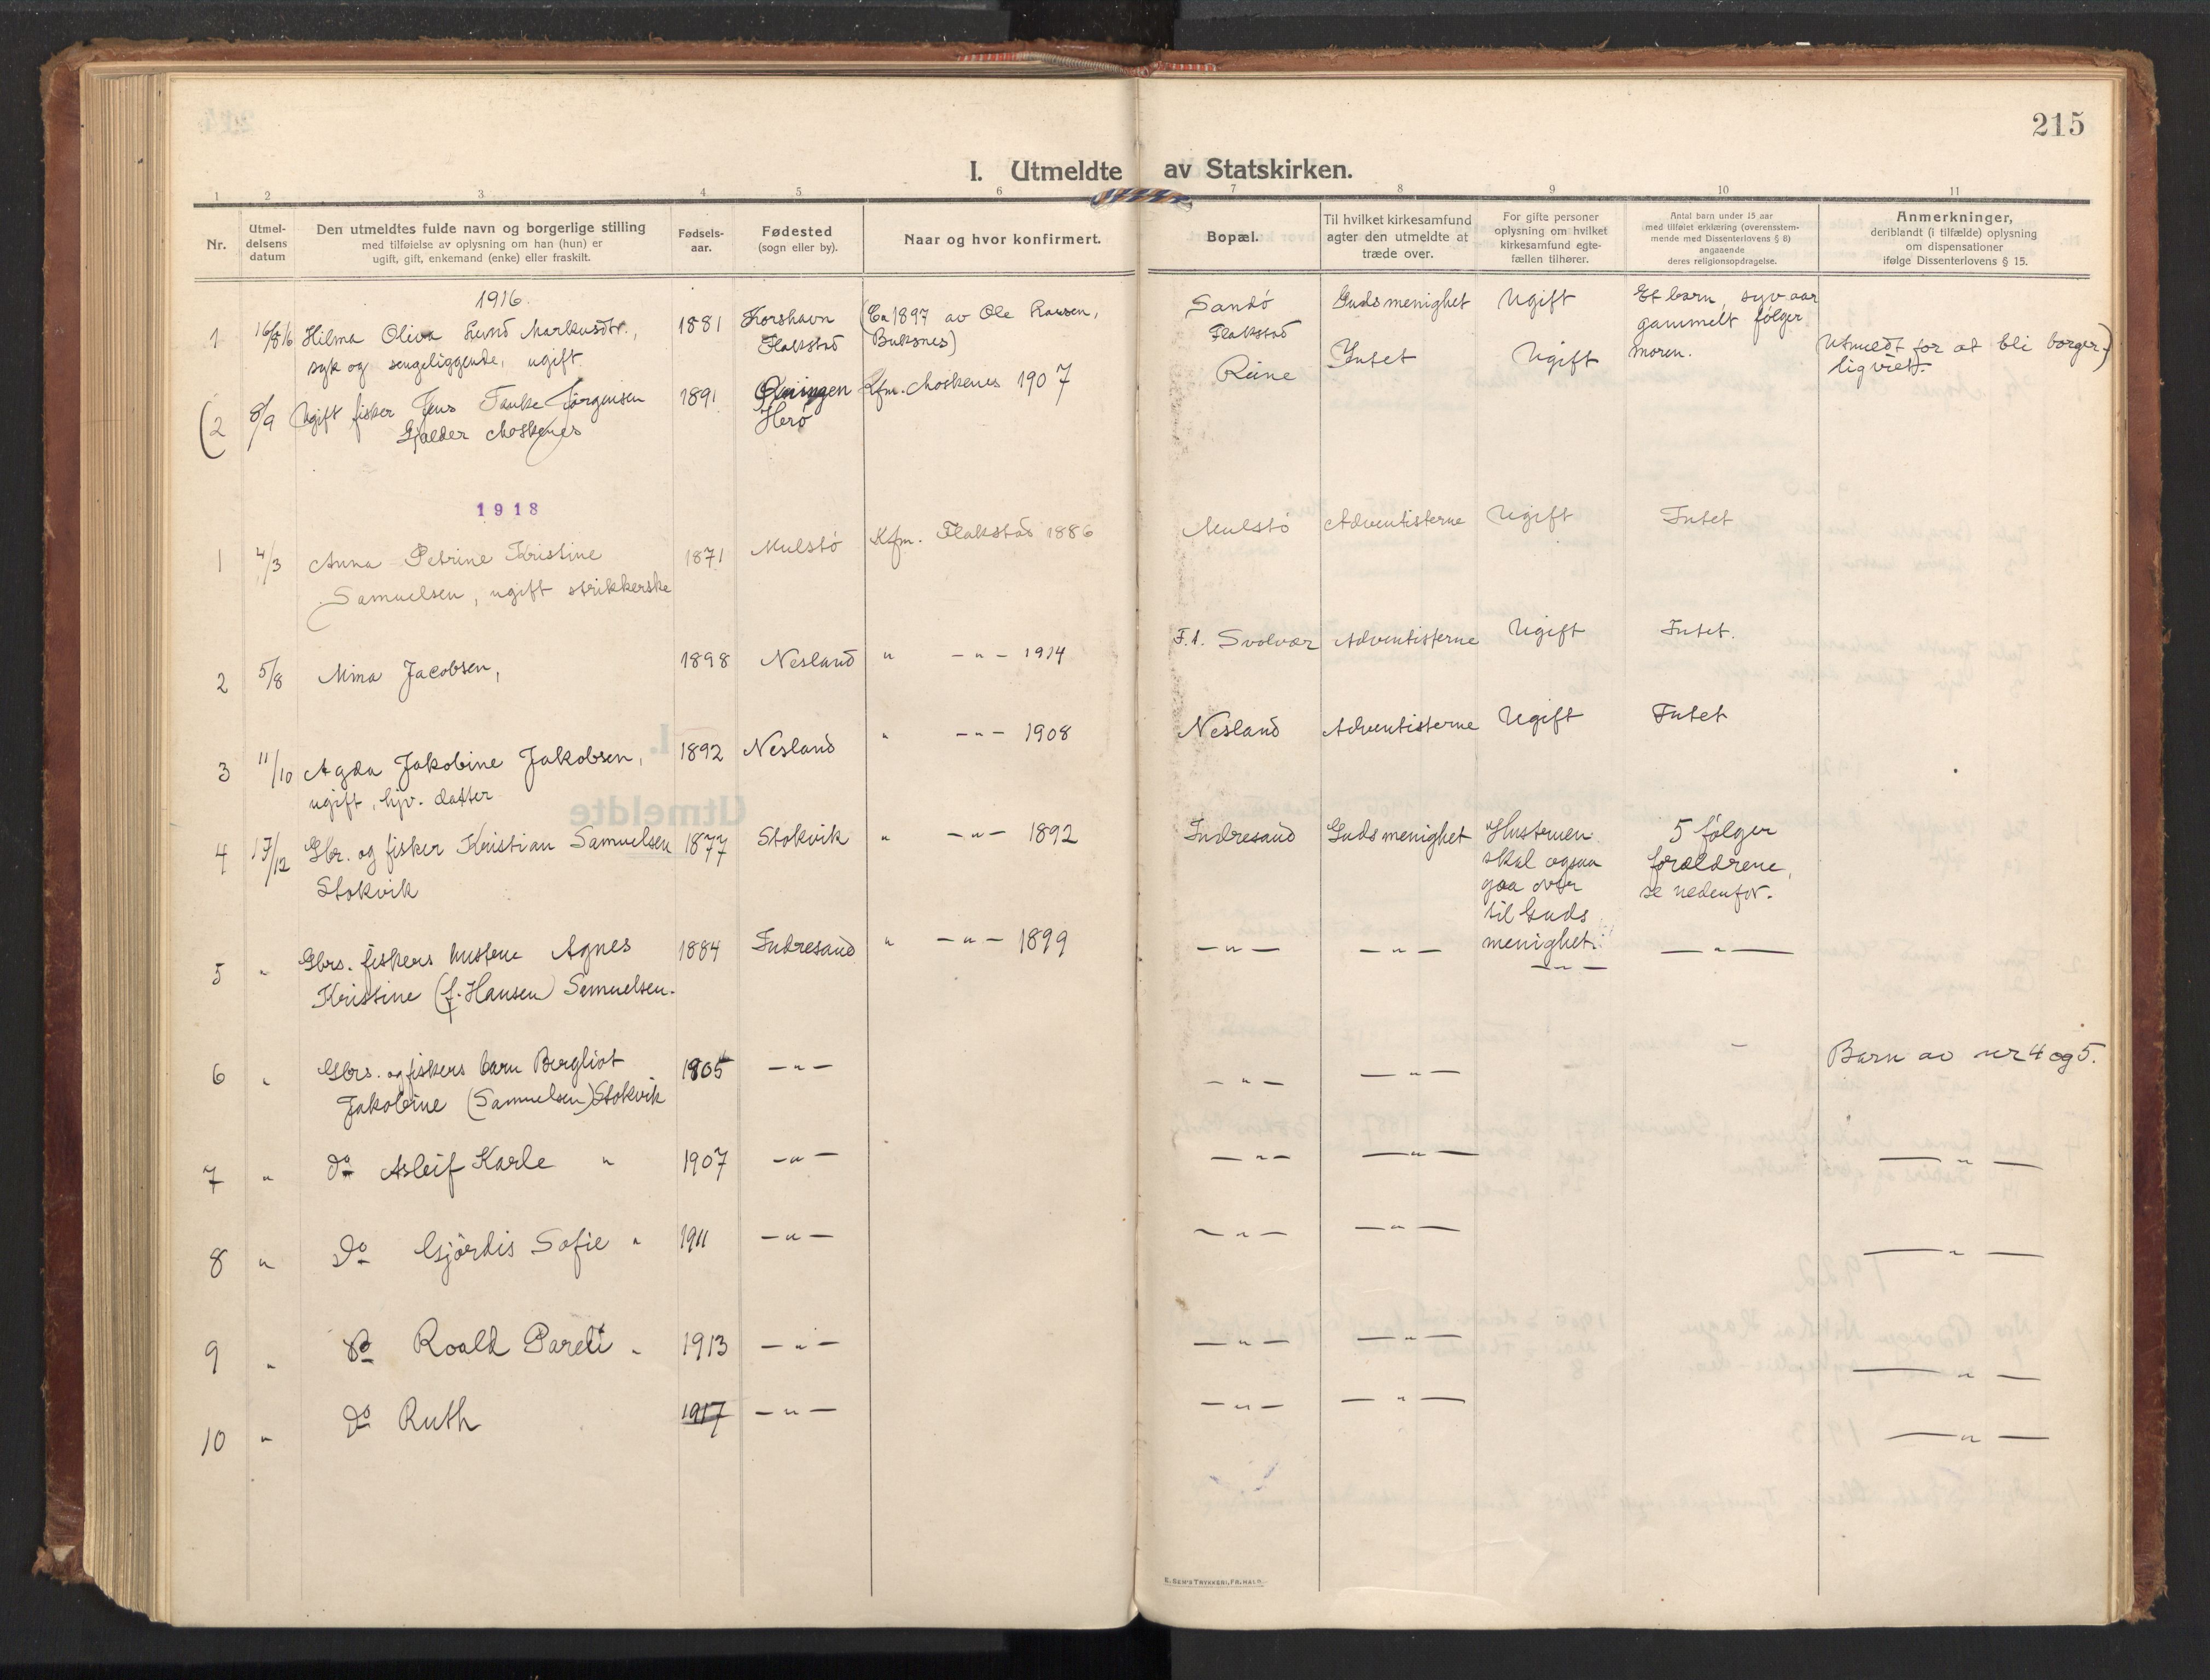 215
I. Utmeldte av Statskirken.
1 2 3 4 5 6 7 8 9 10 11
Nr.
Utmel-
delsens
datum
Den utmeldtes fulde navn og borgerlige stilling
med tilføielse av oplysning om han (hun) er
ugift, gift, enkemand (enke) eller fraskilt.
Fødsels-
aar.
Fødested
(sogn eller by).
Naar og hvor konfirmert.
Bopæl.
Til hvilket kirkesamfund
agter den utmeldte at
træde over.
For gifte personer
oplysning om hvilket
kirkesamfund egte-
fællen tilhører.
Antal barn under 15 aar
med tilføiet erklæring (overensstem-
mende med Dissenterlovens § 8)
angaaende
deres religionsopdragelse.
Anmerkninger,
deriblandt (i tilfælde) oplysning
om dispensationer
ifølge Dissenterlovens § 15.
1916.
1 16/8 16 Hilma Oliva Lund Markusdtr., 1881 Korshavn (Ca 1897 av Ole Larsen, Sandö Guds menighet Ugift Et barn, syv aar
syk og sengeliggende, ugift Flakstad Buksnes) Flakstad gammelt følger
moren.
(2 8/9 Ugift fisker Jens Tanke Jörgensen 1891 Herö Kfm. Moskenes 1907 Reine Intet Ugift Utmeldt for at bli borger-)
Gjælder Moskenes ligviet.
1918
1 4/3 Anna Petrine Kristine 1871 Mulstö Kfm. Flakstad 1886 Mulstö Adventisterne Ugift Intet
Samuelsen, ugift strikkerske
2 5/8 Mina Jacobsen, 1898 Nesland " – " – 1914 F.t. Svolvær Adventisterne Ugift Intet.
3 11/10 Agda Jakobine Jakobsen, 1892 Nesland " – " – 1908 Nesland Adventisterne Ugift Intet
ugift, hjv. datter
4 17/12 Gbr. og fisker Kristian Samuelsen 1877 Stokvik " – " – 1892 Indresand Guds menighet Hustruen 5 følger
Stokvik skal ogsaa forældrene,
gaa over se nedenfor.
til Guds
menighet.
5 " Gbrs. fiskers hustru Agnes 1884 Indresand " – " – 1899 – " – – " – – " – – " –
Kristine (f. Hansen) Samuelsen.
6 " Gbrs. og fiskers barn Bergliot 1905 – " – – " – – " – – Barn av nr 4 og 5.
Jakobine (Samuelsen) Stokvik
7 " do Asleif Karle " 1907 – " – – " – – " – – " –
8 " do Hjördis Sofie " 1911 – " – – " – – " – – " –
9 " do Roald Pareli " 1913 – " – – " – – " – – " –
10 " do Ruth 1917 – " – – " – – " – – " –
E. SEM'S TRYKKERI, FR.HALD.